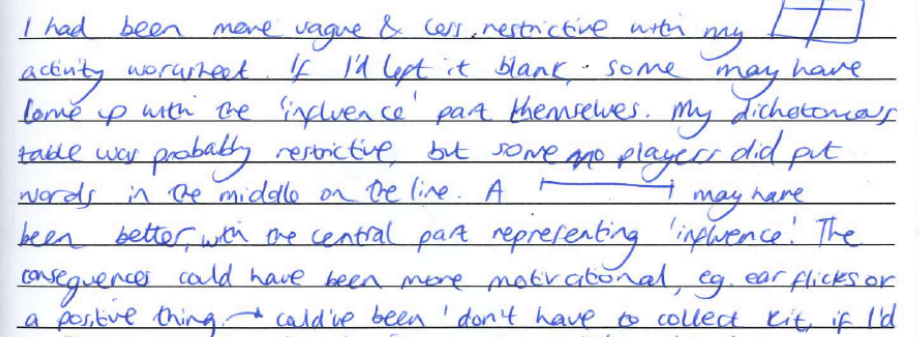 I had been more vague & less restrictive with my
activity worksheet. If I'd left it blank, some may have
come up with the 'influence' part themselves. My dichotomous
table was probably restrictive, but some players did put
words in the middle on the line. A may have
been better, with the central part representing 'influence'. The
consequences could have been more motivational, eg. ear flicks or
a positive thing → could've been 'don't have to collect kit, if I'd